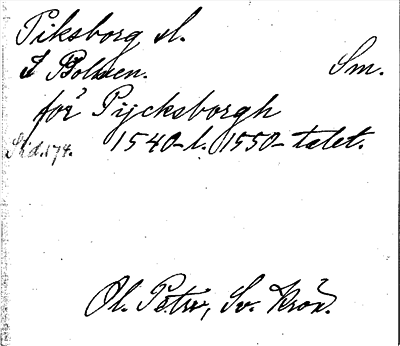 Piksborg sl.
I Bolmen. Sm.
för Pijcksborgh
Sid. 174. 1540- l. 1550-talet.
Ol. Petri, Sv. Krön.